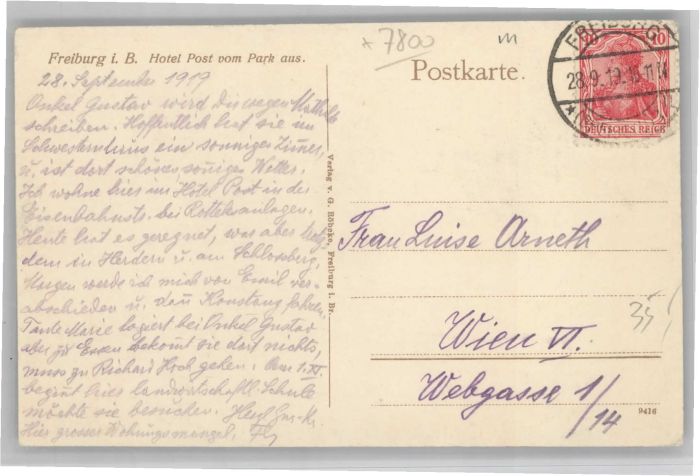 Freiburg i. B. Hotel Post vom Park aus.
28. September 1919
Onkel Gustav wird dir wegen Mathilde
schreiben. Hoffentlich hat sie im
Schwesternhaus ein sonniges Zimmer,
u. ist dort schönes sonniges Wetter.
Ich wohne hier im Hôtel Post in der
Eisenbahnstr. bei Rotteksanlagen.
Heute hat es geregnet, war aber trotz-
dem in Herdern u. am Schlossberg.
Morgen werde ich mich von Emil ver-
abschieden u. dan Konstanz fahren.
Tante Marie logiert bei Onkel Gustav
aber zu Essen bekomt sie dort nichts,
muss zu Richard Hoch gehen. Am 1. XI
begint hier landwirtschaftl. Schule
möchte sie besuchen. Herzl
Hier grosser Wohnungsmangel.
Verlag v. G. Röbcke, Freiburg i. Br.
+ 7800
Postkarte.
FREIBURG
28.9.19.
10
DEUTSCHES REICH
Frau Luise Arneth
Wien VI.
Webgasse 1/14
35
9416